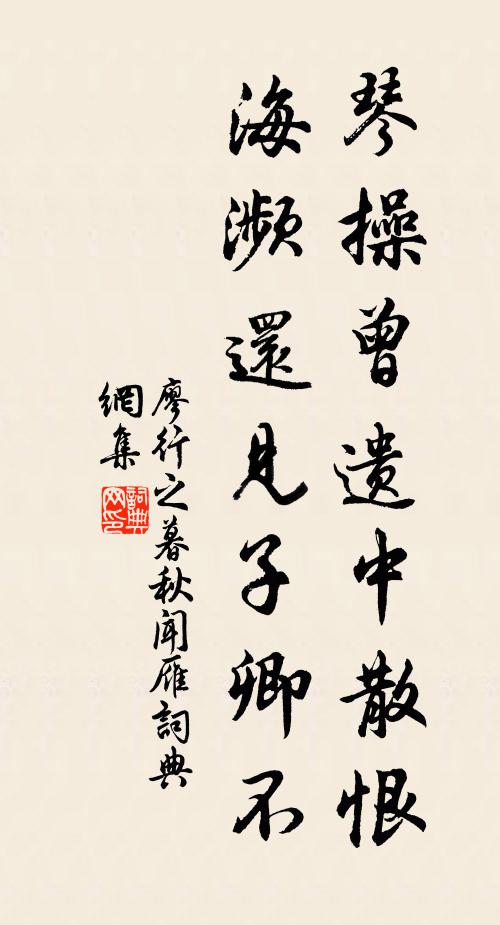 琴操曾遗中散恨
海濒還見子卿不
廖行之暮秋闻雁詞典
網集
詞典网印